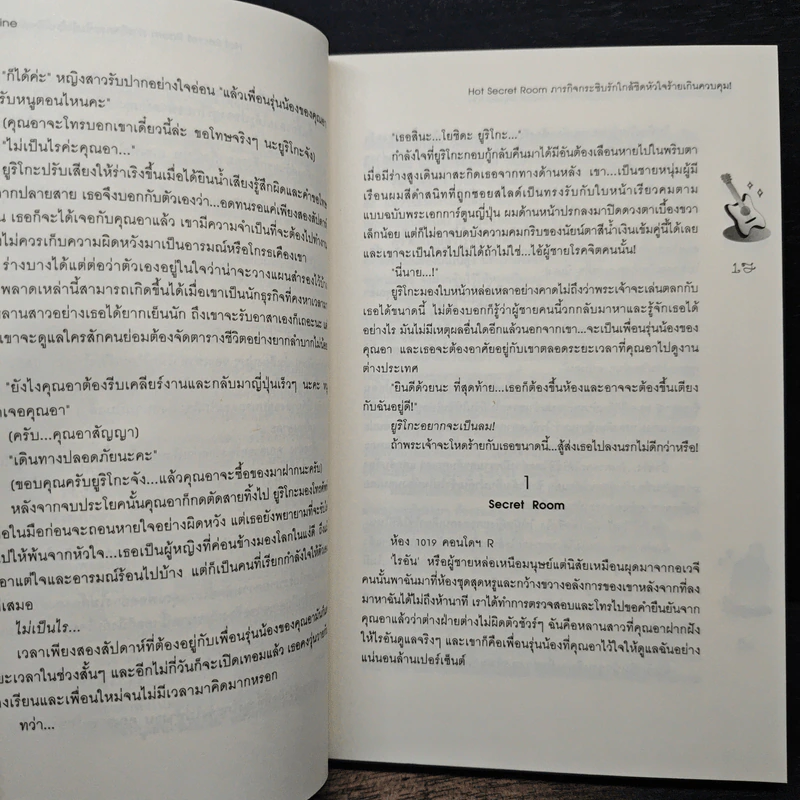 ine
"ก็ได้ค่ะ" หญิงสาวรับปากอย่างใจอ่อน "แล้วเพื่อนรุ่นน้องของคุณอา
รับหนูตอนไหนคะ"
(คุณอาจะโทรบอกเขาเดี๋ยวนี้ล่ะ ขอโทษจริงๆ นะยูริโกะจัง)
"ไม่เป็นไรค่ะคุณอา..."
ยูริโกะปรับเสียงให้ร่าเริงขึ้นเมื่อได้ยินน้ำเสียงรู้สึกผิดและคำขอโทษ
ากปลายสาย เธอจึงบอกกับตัวเองว่า...อดทนรอแค่เพียงสองสัปดาห์
น เธอก็จะได้เจอกับคุณอาแล้ว เขามีความจำเป็นที่จะต้องไปทำงาน
ไม่ควรเก็บความผิดหวังมาเป็นอารมณ์หรือโกรธเคืองเขา
ร่างบางได้แต่ต่อว่าตัวเองอยู่ในใจว่าน่าจะวางแผนสำรองไว้บ้าง
พลาดเหล่านี้สามารถเกิดขึ้นได้เมื่อเขาเป็นนักธุรกิจที่คงหาเวลา
ลานสาวอย่างเธอได้ยากเย็นนัก ถึงเขาจะรับอาสาเองก็เถอะนะ แต่
เขาจะดูแลใครสักคนย่อมต้องจัดตารางชีวิตอย่างยากลำบากไม่น้อย
"ยังไงคุณอาต้องรีบเคลียร์งานและกลับมาญี่ปุ่นเร็วๆ นะคะ
เจอคุณอา"
(ครับ...คุณอาสัญญา)
"เดินทางปลอดภัยนะคะ"
(ขอบคุณครับยูริโกะจัง...แล้วคุณอาจะซื้อของมาฝากนะครับ)
หลังจากจบประโยคนั้นคุณอาก็กดตัดสายทิ้งไป ยูริโกะมองโทรศัพท์
อในมือก่อนจะถอนหายใจอย่างผิดหวัง แต่เธอยังพยายามที่จะ
ปให้พ้นจากหัวใจ...เธอเป็นผู้หญิงที่ค่อนข้างมองโลกในแง่ดี ถึงแม้
อาแต่ใจและอารมณ์ร้อนไปบ้าง แต่ก็เป็นคนที่เรียกกำลังใจให้ตัวเอง
เสมอ
ไม่เป็นไร...
เวลาเพียงสองสัปดาห์ที่ต้องอยู่กับเพื่อนรุ่นน้องของคุณอา
ยะเวลาในช่วงสั้นๆ และอีกไม่กี่วันก็จะเปิดเทอมแล้ว เธอคงวุ่นวายกับ
งเรียนและเพื่อนใหม่จนไม่มีเวลามาคิดมากหรอก
ทว่า...
Hot Secret Room ภารกิจกระซิบรักใกล้ชิดหัวใจร้ายเกินควบคุม!
"เธอสินะ...โยชิดะ ยูริโกะ..."
กำลังใจที่ยูริโกะกอบกู้กลับคืนมาได้มีอันต้องเลือนหายไปในพริบตา
เมื่อมีร่างสูงเดินมาสะกิดเธอจากทางด้านหลัง เขา...เป็นชายหนุ่มผู้มี
เรือนผมสีดำสนิทที่ถูกซอยสไลด์เป็นทรงรับกับใบหน้าเรียวคมตาม
แบบฉบับพระเอกการ์ตูนญี่ปุ่น ผมด้านหน้าปรกลงมาปิดดวงตาเบื้องขวา
เล็กน้อย แต่ก็ไม่อาจบดบังความคมกริบของนัยน์ตาสีน้ำเงินเข้มคู่นี้ได้เลย
และเขาจะเป็นใครไปไม่ได้ถ้าไม่ใช่...ไอ้ผู้ชายโรคจิตคนนั้น!
"นี่นาย...!"
ยูริโกะมองใบหน้าหล่อเหลาอย่างคาดไม่ถึงว่าพระเจ้าจะเล่นตลกกับ
เธอได้ขนาดนี้ ไม่ต้องบอกก็รู้ว่าผู้ชายคนนี้วกกลับมาหาและรู้จักเธอได้
อย่างไร มันไม่มีเหตุผลอื่นใดอีกแล้วนอกจากเขา...จะเป็นเพื่อนรุ่นน้องของ
คุณอา และเธอจะต้องอาศัยอยู่กับเขาตลอดระยะเวลาที่คุณอาไปดูงาน
ต่างประเทศ
"ยินดีด้วยนะ ที่สุดท้าย...เธอก็ต้องขึ้นห้องและอาจจะต้องขึ้นเตียง
กับฉันอยู่ดี!"
ยูริโกะอยากจะเป็นลม!
ถ้าพระเจ้าจะโหดร้ายกับเธอขนาดนี้...สู้ส่งเธอไปลงนรกไม่ดีกว่าหรือ!
15
1
Secret Room
ห้อง 1019 คอนโดฯ R
'ไรอัน' หรือผู้ชายหล่อเหนือมนุษย์แต่นิสัยเหมือนผุดมาจากอเวจี
คนนั้นพาฉันมาที่ห้องชุดสุดหรูและกว้างขวางอลังการของเขาหลังจากที่ลง
มาหาฉันได้ไม่ถึงห้านาที เราได้ทำการตรวจสอบและโทรไปขอคำยืนยันจาก
คุณอาแล้วว่าต่างฝ่ายต่างไม่ผิดตัวชัวร์ๆ ฉันคือหลานสาวที่คุณอาฝากฝัง
ให้ไรอันดูแลจริงๆ และเขาก็คือเพื่อนรุ่นน้องที่คุณอาไว้ใจให้ดูแลฉันอย่าง
แน่นอนล้านเปอร์เซ็นต์